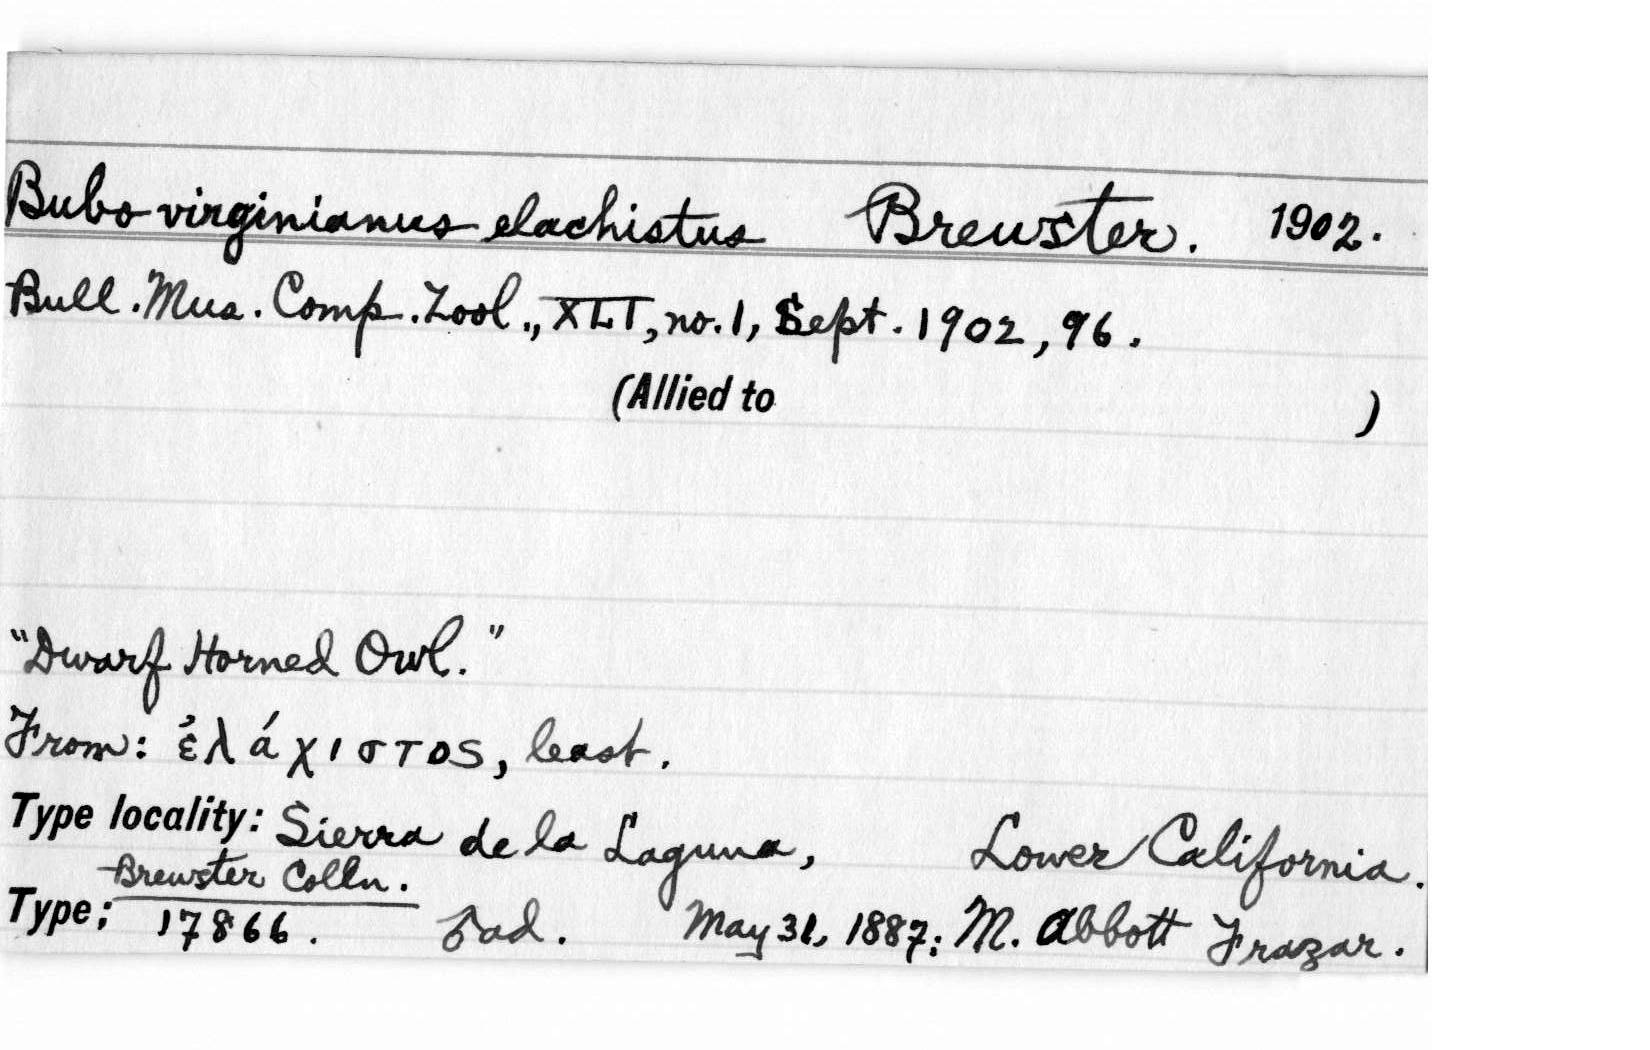 Bubo virginianus elachistus Brewster. 1902.
Bull. Mus. Comp. Zool., XLI, no. 1, Sept. 1902, 96.
(Allied to )
"Dwarf Horned Owl."
From: ἐλάχιστος, least.
Type locality: Sierra de la Laguna, Lower California.
Brewster Colln.
Type: 17866. ♂ ad. May 31, 1887; M. Abbott Frazar.